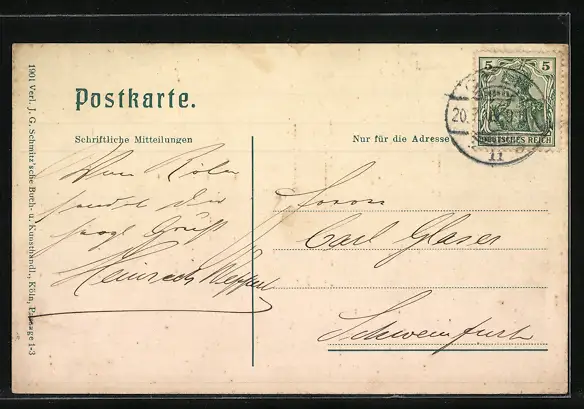 Postkarte.
Schriftliche Mitteilungen
Nur für die Adresse
5 5
DEUTSCHES REICH
20.
11
Von Köln
sendet der
frdl Gruß
Heinrich
Herrn
Carl Glaser
Schweinfurt
1901 Verl. J. G. Schmitz'sche Buch- u. Kunsthandl., Köln, Passage 1-3